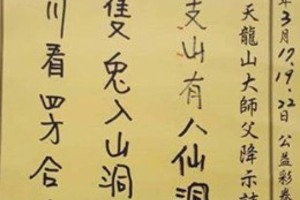 年3月17.19.22日公益彩卷
天龍山大師父降示詩
支山有人仙洞
隻兔入山洞
川看四方合